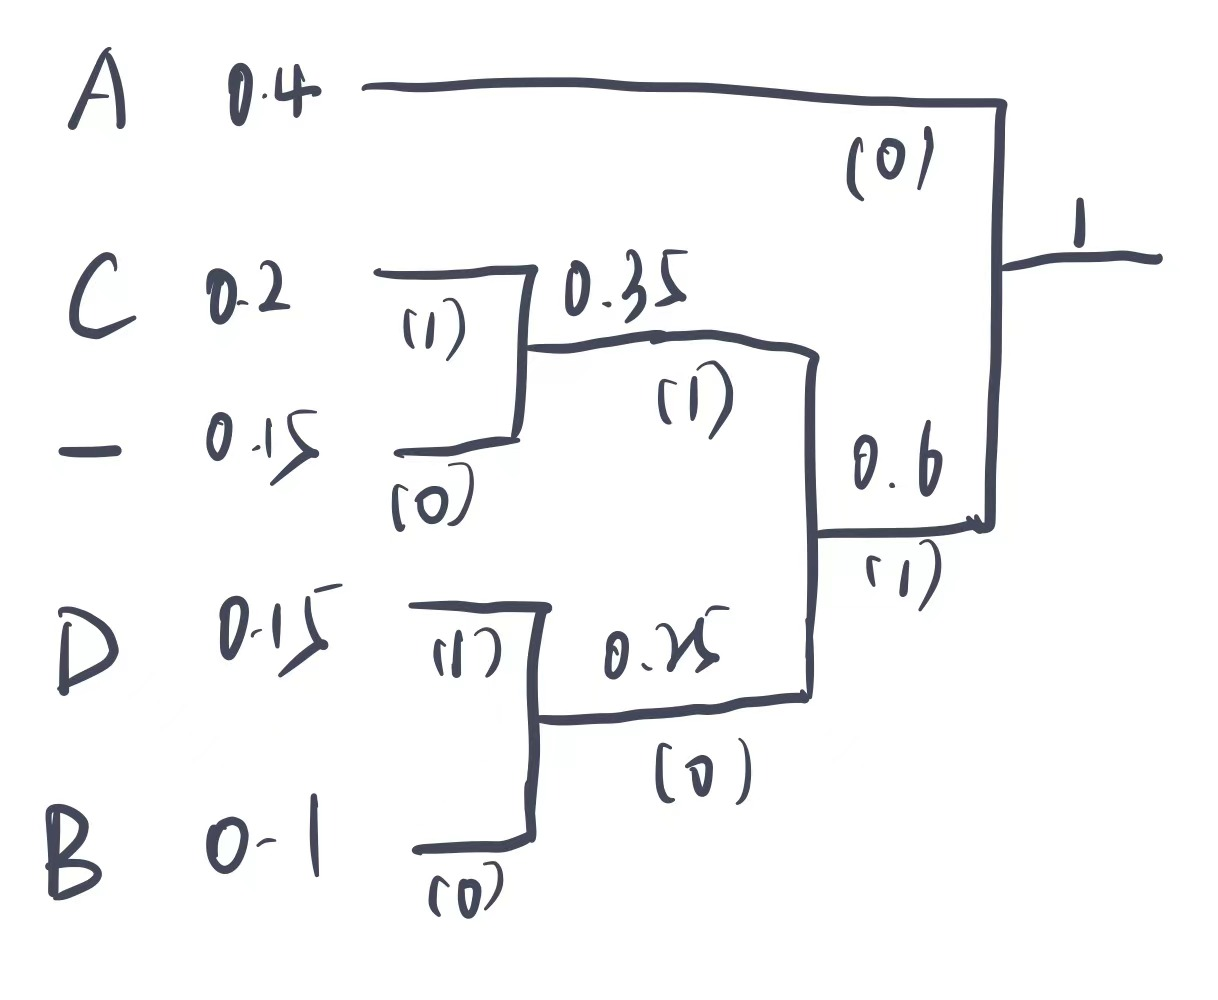 A 0.4
(0)
1
C 0.2 (1) 0.35
(1)
— 0.15 (0)
0.6
(1)
D 0.15 (1) 0.25
(0)
B 0.1 (0)